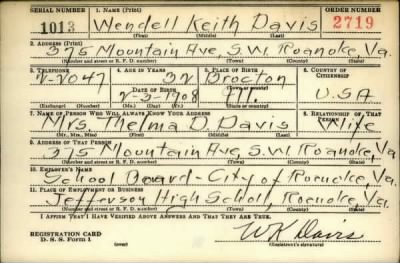 SERIAL NUMBER 1. NAME (Print) ORDER NUMBER
1013 Wendell Keith Davis 2719
(First) (Middle) (Last)
2. ADDRESS (Print)
375 Mountain Ave, S.W. Roanoke, Va.
(Number and street or R. F. D. number) (Town) (County) (State)
3. TELEPHONE 4. AGE IN YEARS 5. PLACE OF BIRTH 6. COUNTRY OF CITIZENSHIP
2-2047 32 Brocton
DATE OF BIRTH (Town or county)
2-3-1908 Ill. USA
(Exchange) (Number) (Mo.) (Day) (Yr.) (State or country)
7. NAME OF PERSON WHO WILL ALWAYS KNOW YOUR ADDRESS 8. RELATIONSHIP OF THAT PERSON
Mrs. Thelma D. Davis Wife
(Mr., Mrs., Miss) (First) (Middle) (Last)
9. ADDRESS OF THAT PERSON
375 Mountain Ave, S.W. Roanoke, Va
(Number and street or R. F. D. number) (Town) (County) (State)
10. EMPLOYER'S NAME
School Board-City of Roanoke, Va.
11. PLACE OF EMPLOYMENT OR BUSINESS
Jefferson High School, Roanoke, Va.
(Number and street or R. F. D. number) (Town) (County) (State)
I AFFIRM THAT I HAVE VERIFIED ABOVE ANSWERS AND THAT THEY ARE TRUE.
REGISTRATION CARD
D. S. S. Form 1 WK Davis
(Registrant's signature)